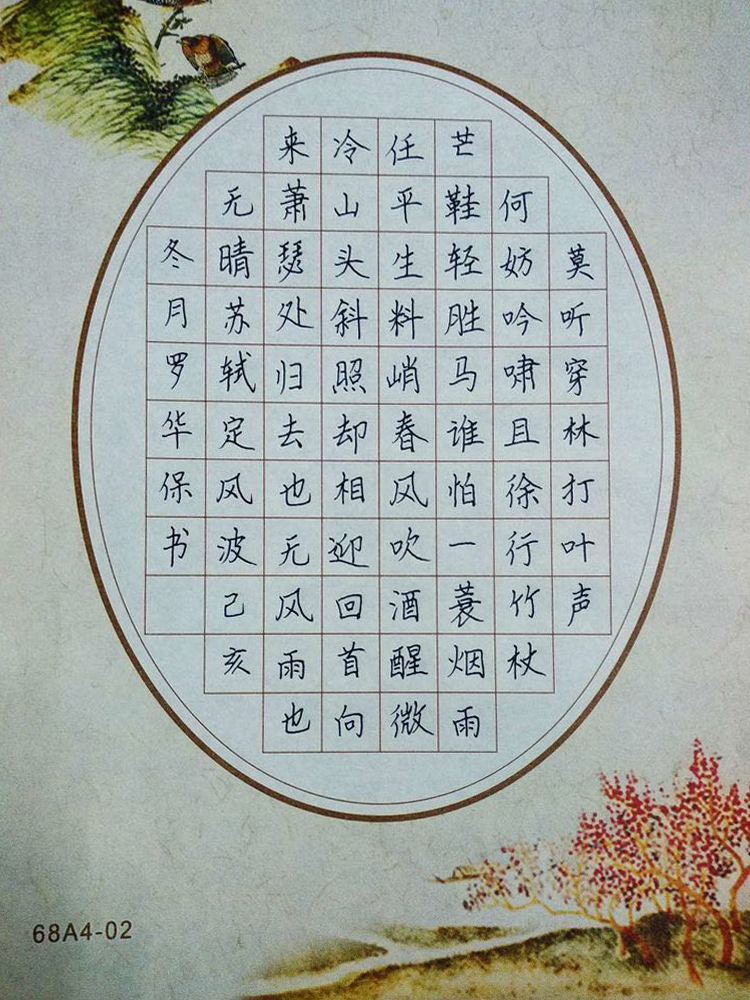 莫听穿林打叶声
何妨吟啸且徐行竹杖
芒鞋轻胜马谁怕一蓑烟雨
任平生料峭春风吹酒醒微
冷山头斜照却相迎回首向
来萧瑟处归去也无风雨也
无晴苏轼定风波己亥
冬月罗华保书
68A4-02